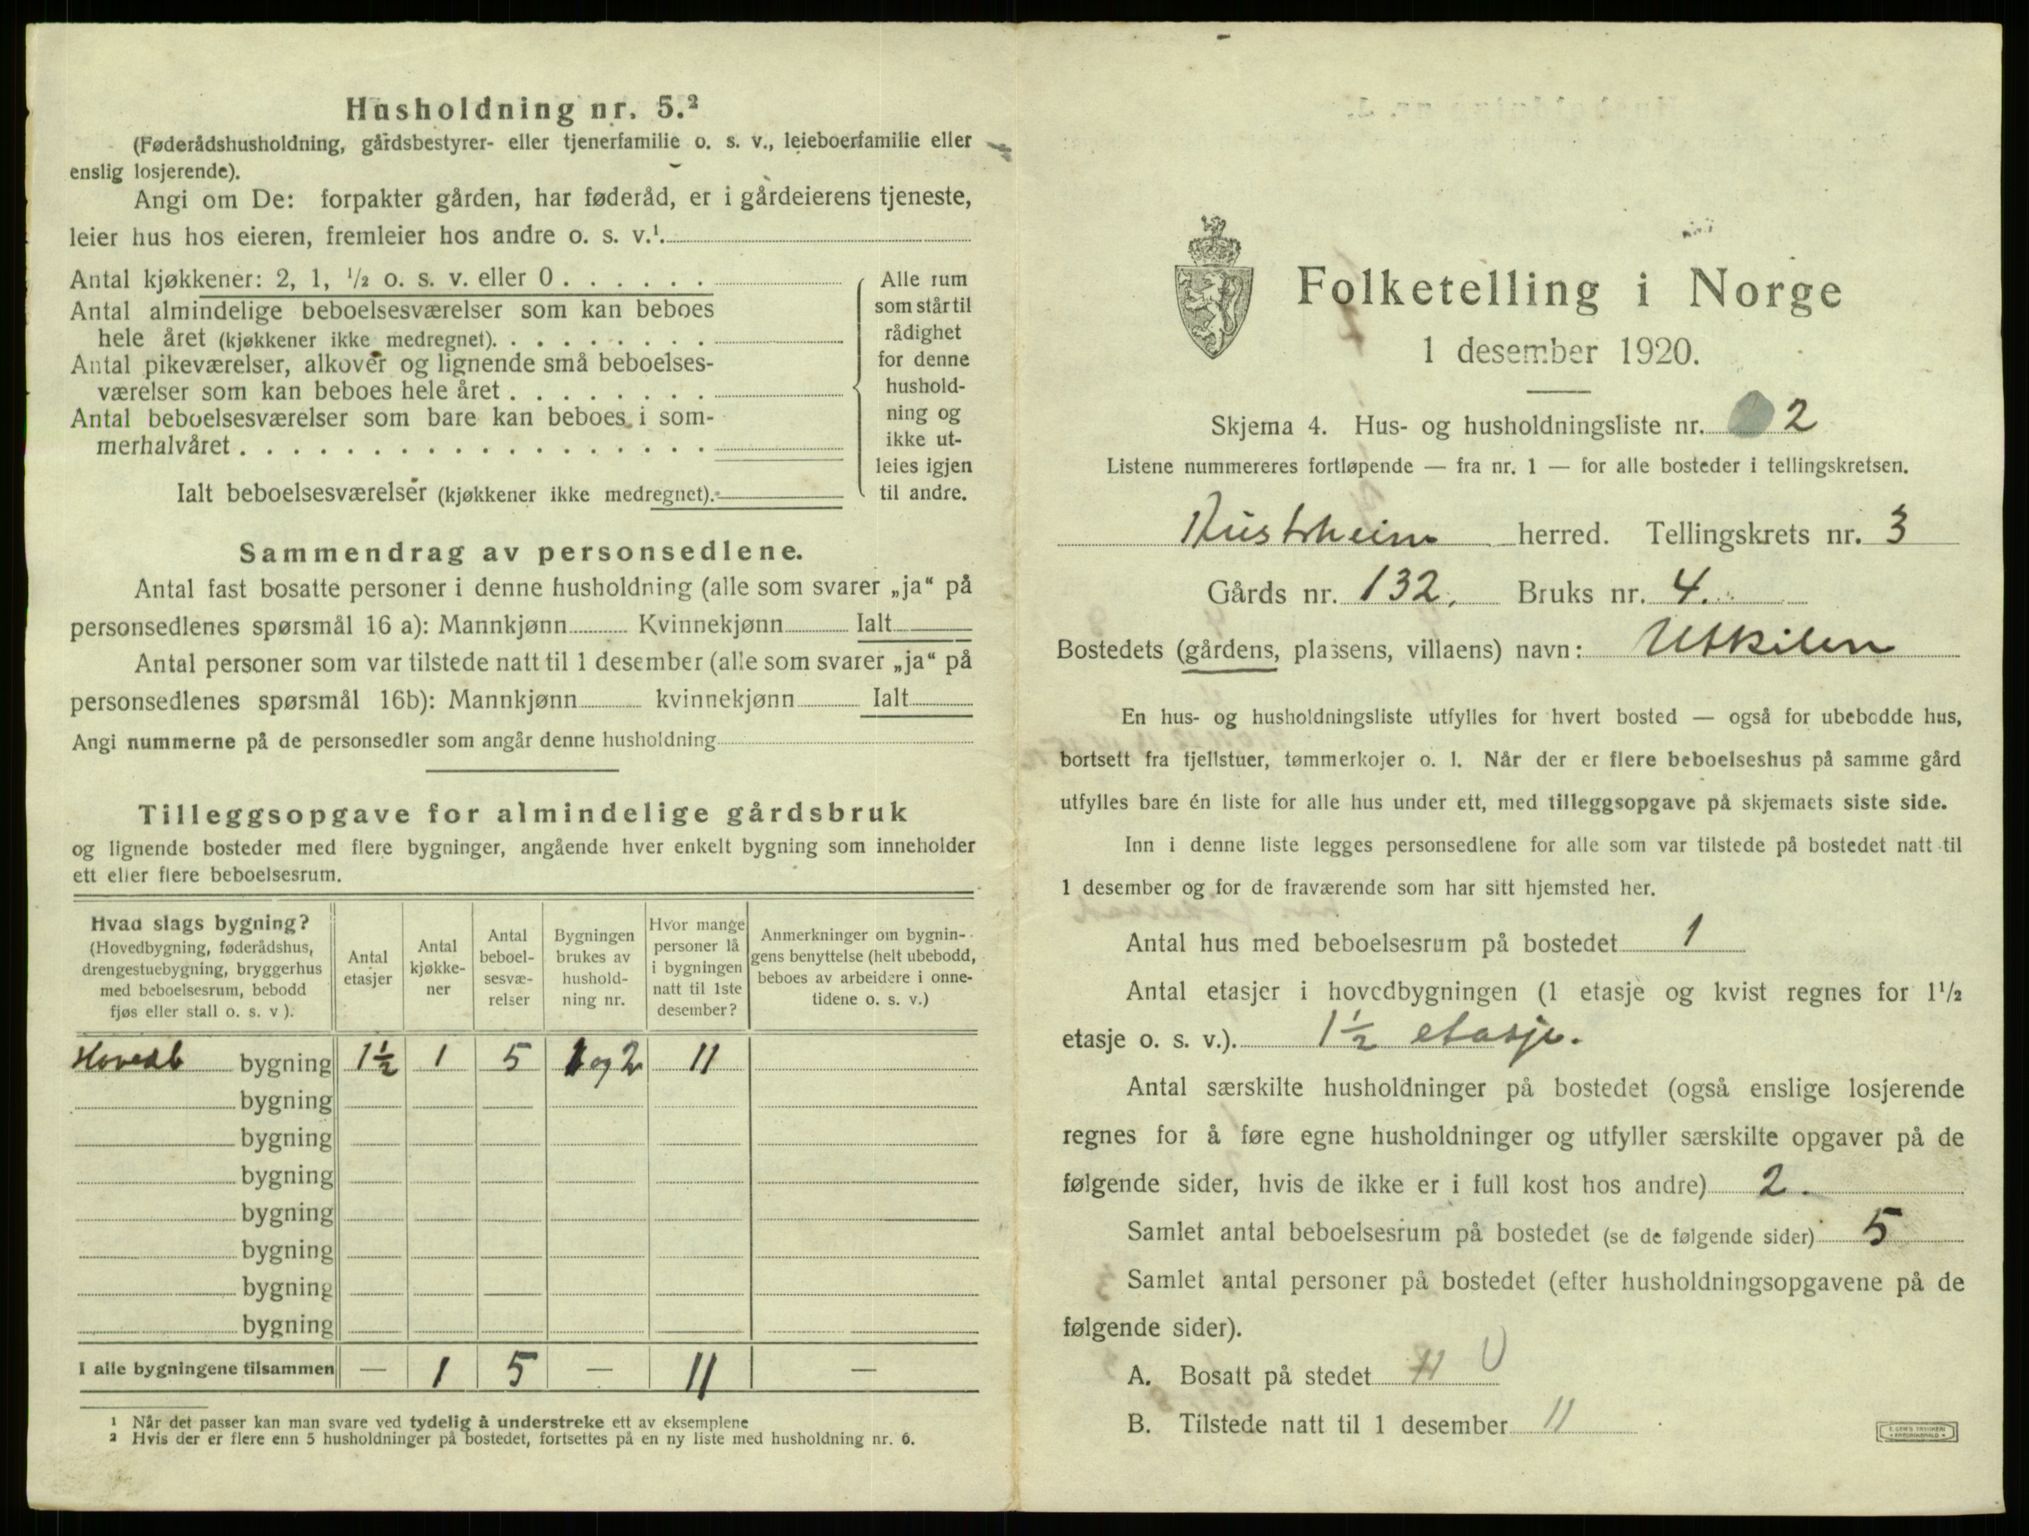 Husholdning nr. 5.²
(Føderådshusholdning, gårdsbestyrer- eller tjenerfamilie o. s. v., leieboerfamilie eller
enslig losjerende).
Angi om De: forpakter gården, har føderåd, er i gårdeierens tjeneste,
leier hus hos eieren, fremleier hos andre o. s. v.¹.
Antal kjøkkener: 2, 1, ½ o. s. v. eller 0 . . . . . .
Antal almindelige beboelsesværelser som kan beboes
hele året (kjøkkener ikke medregnet). . . . . . . . .
Antal pikeværelser, alkover og lignende små beboelses-
værelser som kan beboes hele året . . . . . . . .
Antal beboelsesværelser som bare kan beboes i som-
merhalvåret . . . . . . . . . . . . . . . . . .
Ialt beboelsesværelser (kjøkkener ikke medregnet).
Alle rum
som står til
rådighet
for denne
hushold-
ning og
ikke ut-
leies igjen
til andre.
Sammendrag av personsedlene.
Antal fast bosatte personer i denne husholdning (alle som svarer „ja“ på
personsedlenes spørsmål 16 a): Mannkjønn Kvinnekjønn Ialt
Antal personer som var tilstede natt til 1 desember (alle som svarer „ja“ på
personsedlenes spørsmål 16b): Mannkjønn kvinnekjønn Ialt
Angi nummerne på de personsedler som angår denne husholdning
Tilleggsopgave for almindelige gårdsbruk
og lignende bosteder med flere bygninger, angående hver enkelt bygning som inneholder
ett eller flere beboelsesrum.
Hvad slags bygning?
(Hovedbygning, føderådshus,
drengestuebygning, bryggerhus
med beboelsesrum, bebodd
fjøs eller stall o. s. v ).
Antal
etasjer
Antal
kjøkke-
ner
Antal
beboel-
sesvæ-
relser
Bygningen
brukes av
hushold-
ning nr.
Hvor mange
personer lå
i bygningen
natt til 1ste
desember?
Anmerkninger om bygnin-
gens benyttelse (helt ubebodd,
beboes av arbeidere i onne-
tidene o. s. v.)
Hovedb bygning 1½ 1 5 1 og 2 11
bygning
bygning
bygning
bygning
bygning
bygning
bygning
I alle bygningene tilsammen — 1 5 — 11 —
¹ Når det passer kan man svare ved tydelig å understreke ett av eksemplene
² Hvis der er flere enn 5 husholdninger på bostedet, fortsettes på en ny liste med husholdning nr. 6.
Folketelling i Norge
1 desember 1920.
Skjema 4. Hus- og husholdningsliste nr. 2
Listene nummereres fortløpende — fra nr. 1 — for alle bosteder i tellingskretsen.
Austrheim herred. Tellingskrets nr. 3
Gårds nr. 132. Bruks nr. 4.
Bostedets (gårdens, plassens, villaens) navn: Utkilen
En hus- og husholdningsliste utfylles for hvert bosted — også for ubebodde hus,
bortsett fra fjellstuer, tømmerkojer o. l. Når der er flere beboelseshus på samme gård
utfylles bare én liste for alle hus under ett, med tilleggsopgave på skjemaets siste side.
Inn i denne liste legges personsedlene for alle som var tilstede på bostedet natt til
1 desember og for de fraværende som har sitt hjemsted her.
Antal hus med beboelsesrum på bostedet 1
Antal etasjer i hovedbygningen (1 etasje og kvist regnes for 1½
etasje o. s. v.). 1½ etasje.
Antal særskilte husholdninger på bostedet (også enslige losjerende
regnes for å føre egne husholdninger og utfyller særskilte opgaver på de
følgende sider, hvis de ikke er i full kost hos andre) 2.
Samlet antal beboelsesrum på bostedet (se de følgende sider) 5
Samlet antal personer på bostedet (efter husholdningsopgavene på de
følgende sider).
A. Bosatt på stedet
B. Tilstede natt til 1 desember 11